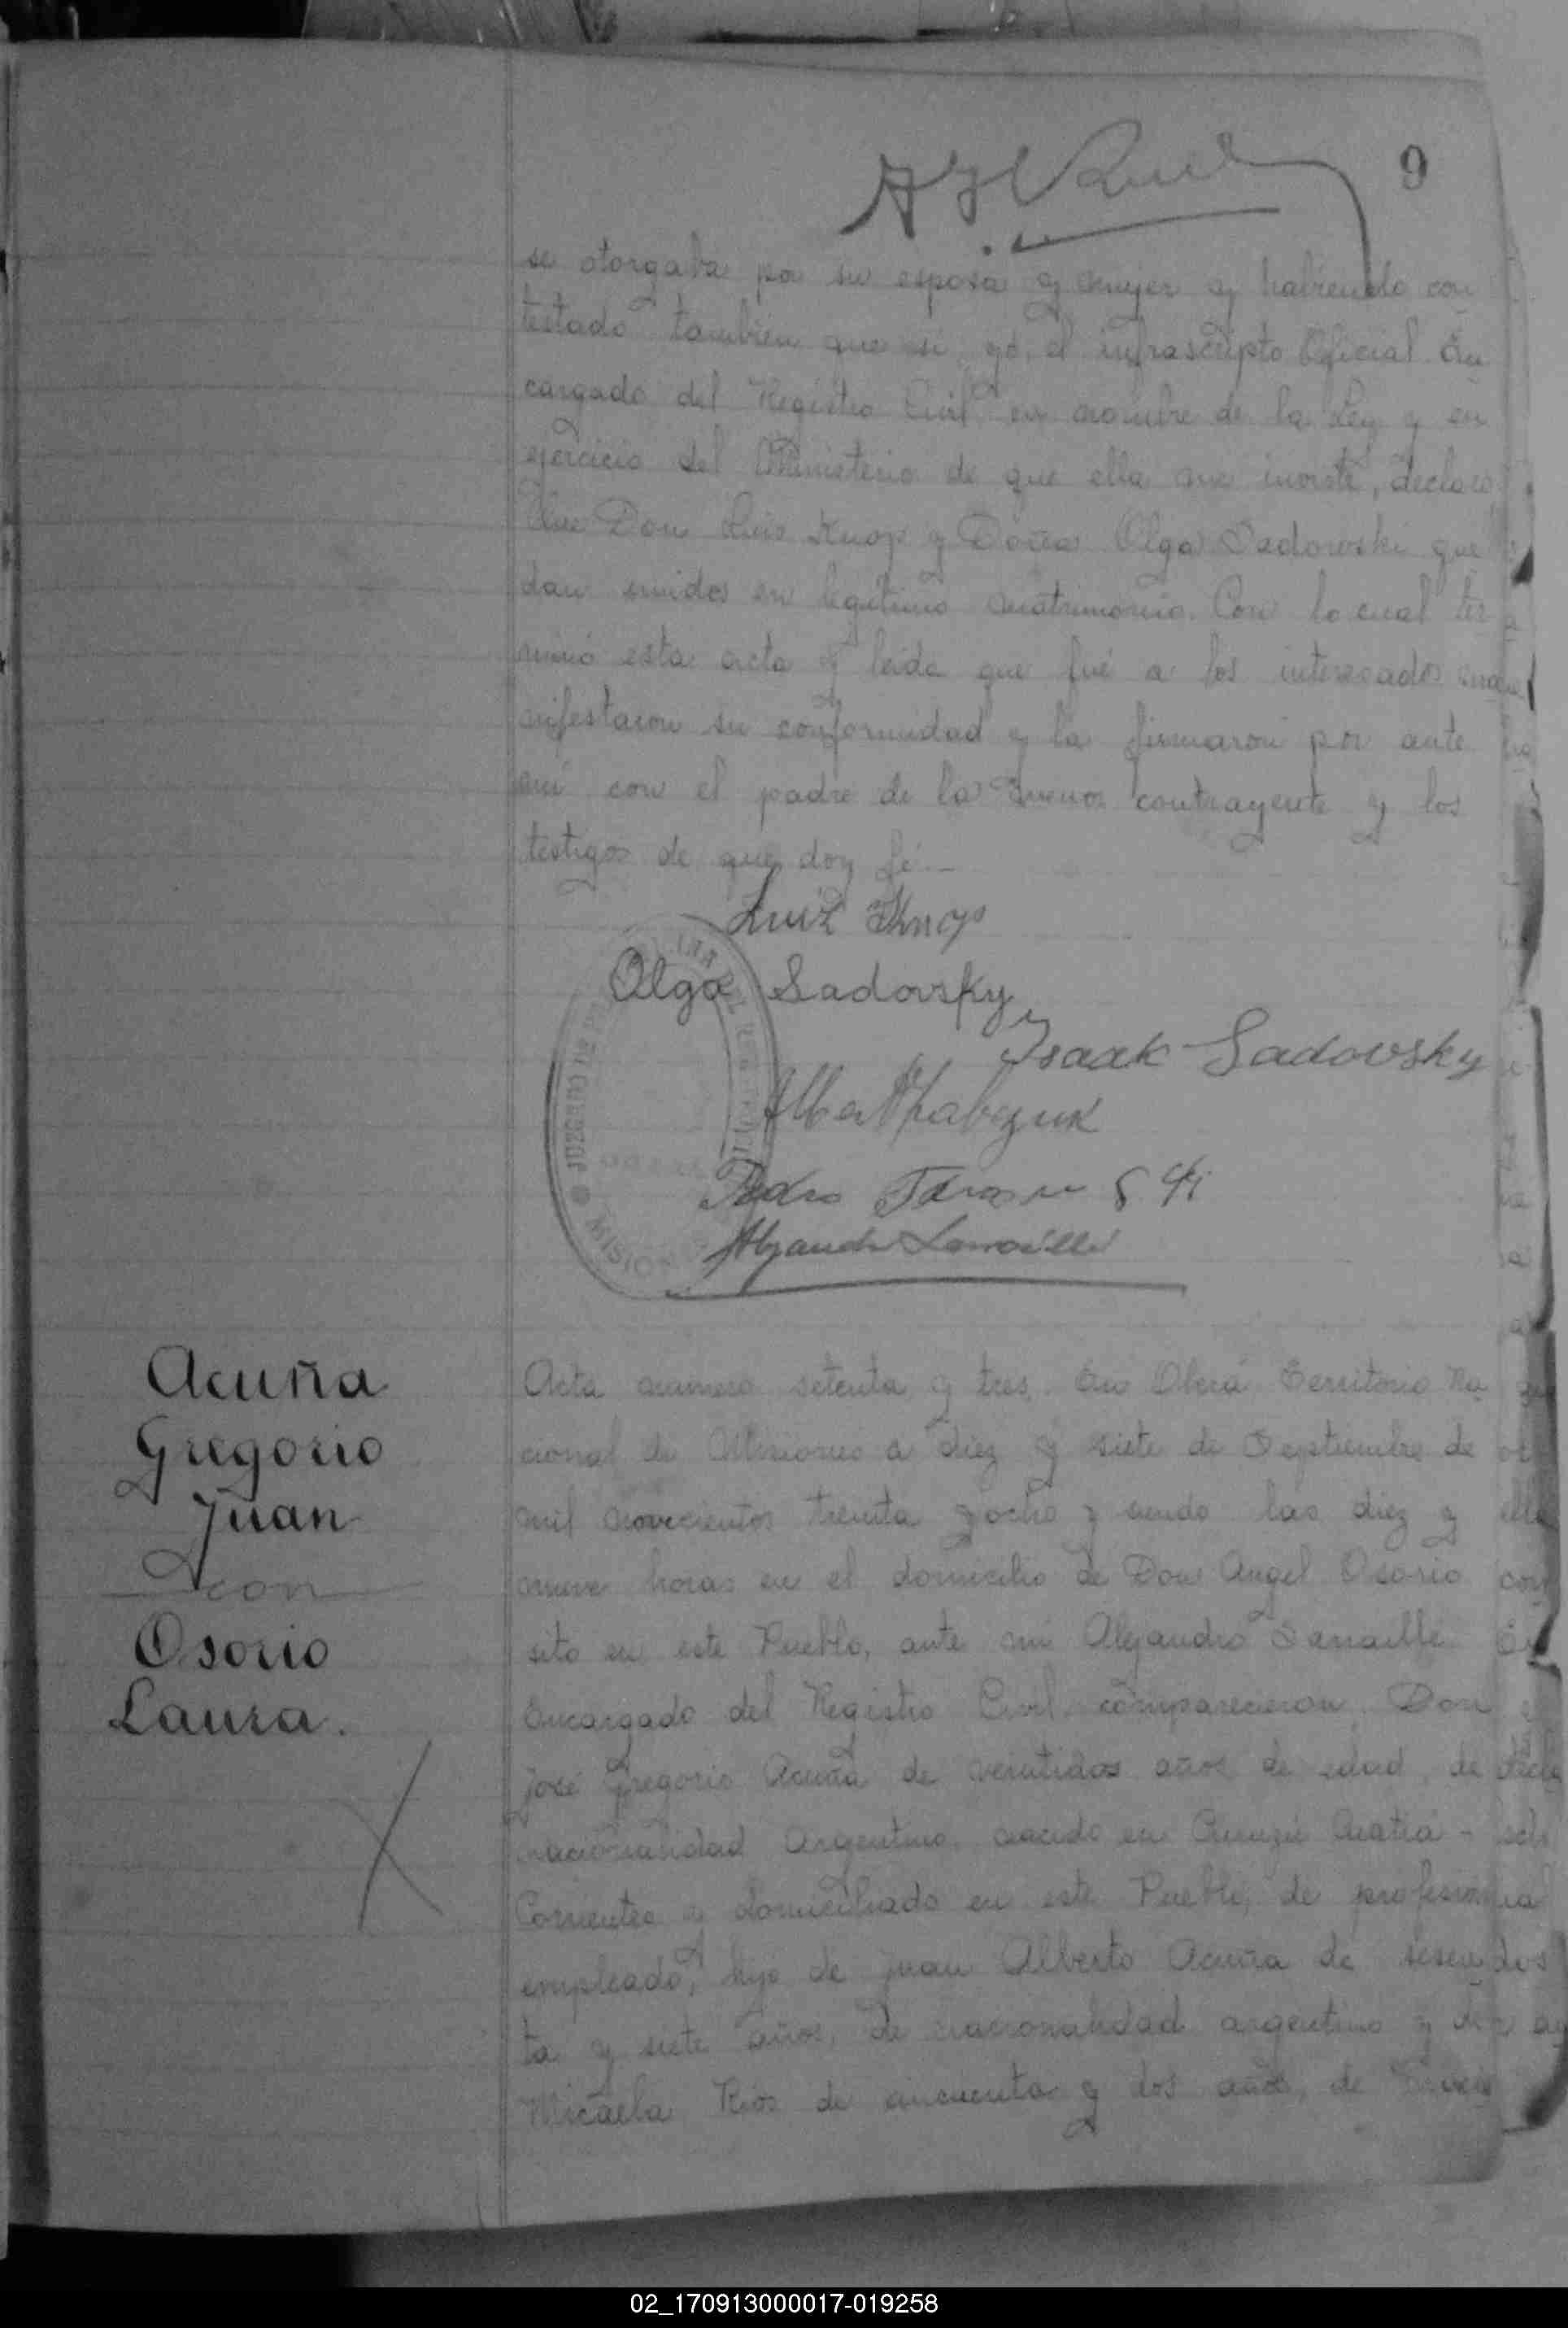 9
se otorgaba por su esposa y mujer y habiendo con
testado tambien que si, yó, el infrascripto Oficial En
cargado del Registro Civil en nombre de la Ley y en
ejercicio del Ministerio de que ella me inviste, declaro
Que Don Luis Knop y Doña Olga Sadowski que
dan unidos en legitimo matrimonio. Con lo cual ter
minó esta acta y leida que fué a los interesados ma
nifestaron su conformidad y la firmaron por ante
mi con el padre de la menor contrayente y los
testigos de que doy fé.—
Luiz Knop
Olga Sadovsky
Isaak Sadovsky
Pedro
Alejandro
JUZGADO DE PAZ
Acuña
Gregorio
Juan
con
Osorio
Laura.
Acta número setenta y tres. En Oberá Territorio Na
cional de Misiones a diez y siete de Septiembre de
mil novecientos treinta y ocho y siendo las diez y
nueve horas en el domicilio de Don Angel Osorio
sito en este Pueblo, ante mi Alejandro
Encargado del Registro Civil, comparecieron Don
José Gregorio Acuña de veintidos años de edad, de
nacionalidad Argentino, nacido en Curuzú Cuatiá -
Corrientes y domiciliado en este Pueblo, de profesion
empleado, hijo de Juan Alberto Acuña de sesen
ta y siete años, de nacionalidad argentino y de
Micaela Rios de cincuenta y dos años, de
02_170913000017-019258